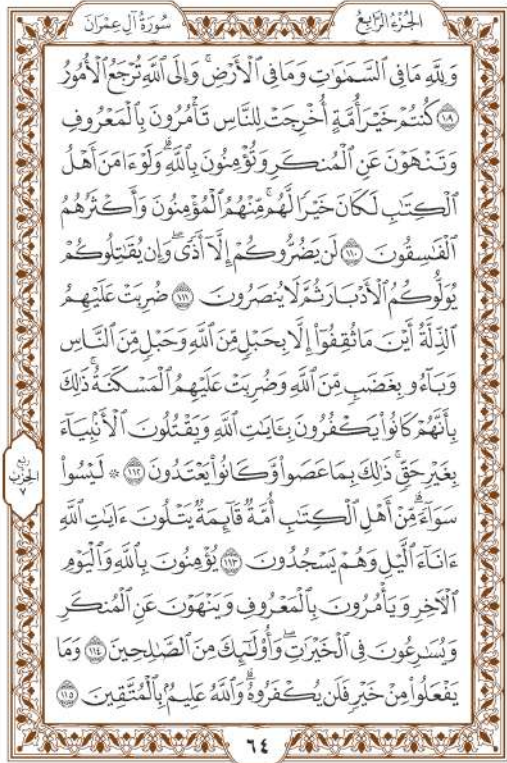 الجُزْءُ الرَّابِعُ
سُورَةُ آلِ عِمْرَانَ
وَلِلَّهِ مَا فِي ٱلسَّمَٰوَٰتِ وَمَا فِي ٱلۡأَرۡضِۚ وَإِلَى ٱللَّهِ تُرۡجَعُ ٱلۡأُمُورُ
١٠٩ كُنتُمۡ خَيۡرَ أُمَّةٍ أُخۡرِجَتۡ لِلنَّاسِ تَأۡمُرُونَ بِٱلۡمَعۡرُوفِ
وَتَنۡهَوۡنَ عَنِ ٱلۡمُنكَرِ وَتُؤۡمِنُونَ بِٱللَّهِۗ وَلَوۡ ءَامَنَ أَهۡلُ
ٱلۡكِتَٰبِ لَكَانَ خَيۡرٗا لَّهُمۚ مِّنۡهُمُ ٱلۡمُؤۡمِنُونَ وَأَكۡثَرُهُمُ
ٱلۡفَٰسِقُونَ ١١٠ لَن يَضُرُّوكُمۡ إِلَّآ أَذٗىۖ وَإِن يُقَٰتِلُوكُمۡ
يُوَلُّوكُمُ ٱلۡأَدۡبَارَ ثُمَّ لَا يُنصَرُونَ ١١١ ضُرِبَتۡ عَلَيۡهِمُ
ٱلذِّلَّةُ أَيۡنَ مَا ثُقِفُوٓاْ إِلَّا بِحَبۡلٖ مِّنَ ٱللَّهِ وَحَبۡلٖ مِّنَ ٱلنَّاسِ
وَبَآءُو بِغَضَبٖ مِّنَ ٱللَّهِ وَضُرِبَتۡ عَلَيۡهِمُ ٱلۡمَسۡكَنَةُۚ ذَٰلِكَ
بِأَنَّهُمۡ كَانُواْ يَكۡفُرُونَ بِـَٔايَٰتِ ٱللَّهِ وَيَقۡتُلُونَ ٱلۡأَنۢبِيَآءَ
بِغَيۡرِ حَقّٖۚ ذَٰلِكَ بِمَا عَصَواْ وَّكَانُواْ يَعۡتَدُونَ ١١٢ ۞ لَيۡسُواْ
سَوَآءٗۗ مِّنۡ أَهۡلِ ٱلۡكِتَٰبِ أُمَّةٞ قَآئِمَةٞ يَتۡلُونَ ءَايَٰتِ ٱللَّهِ
ءَانَآءَ ٱلَّيۡلِ وَهُمۡ يَسۡجُدُونَ ١١٣ يُؤۡمِنُونَ بِٱللَّهِ وَٱلۡيَوۡمِ
ٱلۡأٓخِرِ وَيَأۡمُرُونَ بِٱلۡمَعۡرُوفِ وَيَنۡهَوۡنَ عَنِ ٱلۡمُنكَرِ
وَيُسَٰرِعُونَ فِي ٱلۡخَيۡرَٰتِۖ وَأُوْلَٰٓئِكَ مِنَ ٱلصَّٰلِحِينَ ١١٤ وَمَا
يَفۡعَلُواْ مِنۡ خَيۡرٖ فَلَن يُكۡفَرُوهُۗ وَٱللَّهُ عَلِيمُۢ بِٱلۡمُتَّقِينَ ١١٥
ربع
الحزب
٧
٦٤